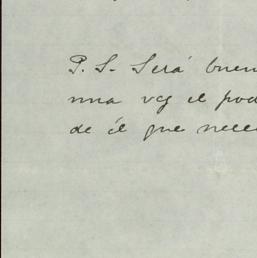 P. S. Será buen
una vez el pod
de él que nece